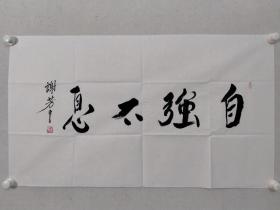 自強不息
謝芳